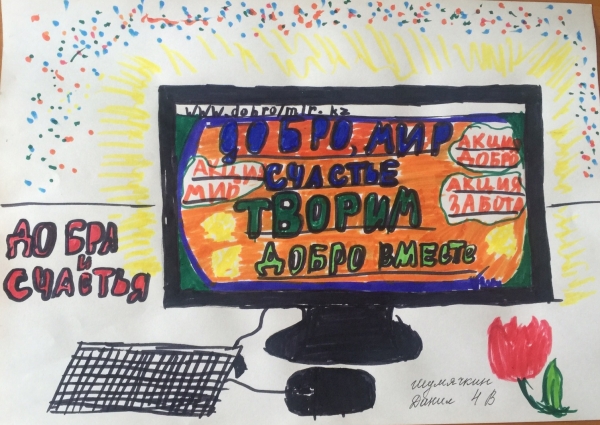 www.dobro/mir.kz
ДОБРО, МИР
СЧАСТЬЕ
ТВОРИМ
ДОБРО ВМЕСТЕ
АКЦИЯ
МИР
АКЦИЯ
ДОБРО
АКЦИЯ
ЗАБОТА
ДОБРА
И
СЧАСТЬЯ
Шумячкин
Данил 4 В